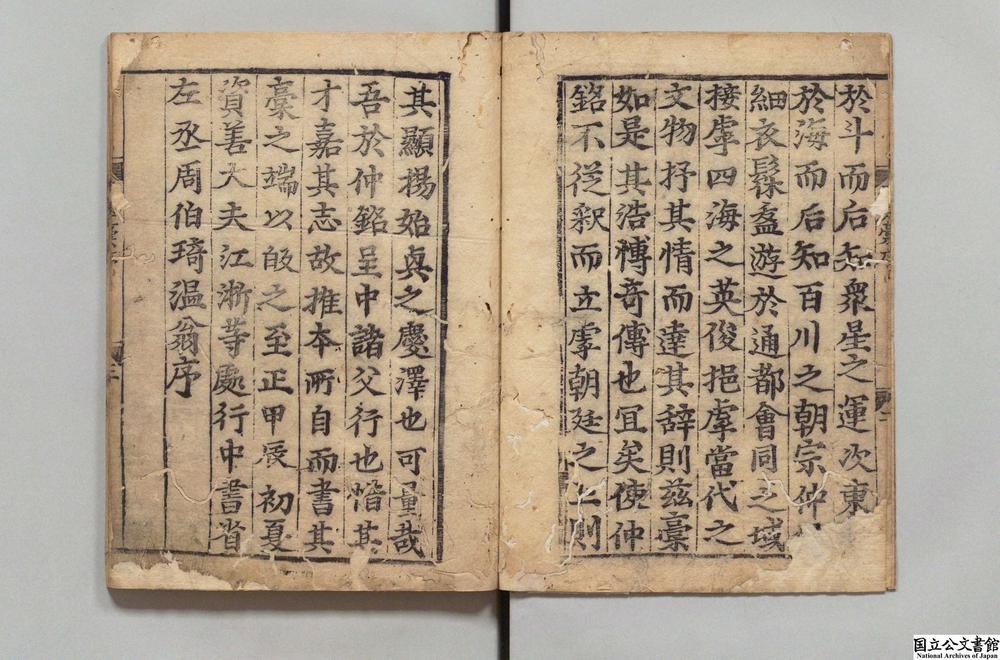 於斗而后知衆星之運次東
於海而后知百川之朝宗仲
細衣鬃盍遊於通都會同之域
接虖四海之英俊挹虖當代之
文物抒其情而達其辞則茲藁
如是其浩博奇傳也冝矣使仲
銘不從釈而立虖朝廷之上則
其顯揚始眞之慶澤也可量哉
吾於仲銘呈中諸父行也惜其
才嘉其志故推本所自而書其
藁之端以皈之至正甲辰初夏
資善大夫江浙等處行中書省
左丞周伯琦温翁序
国立公文書館
National Archives of Japan